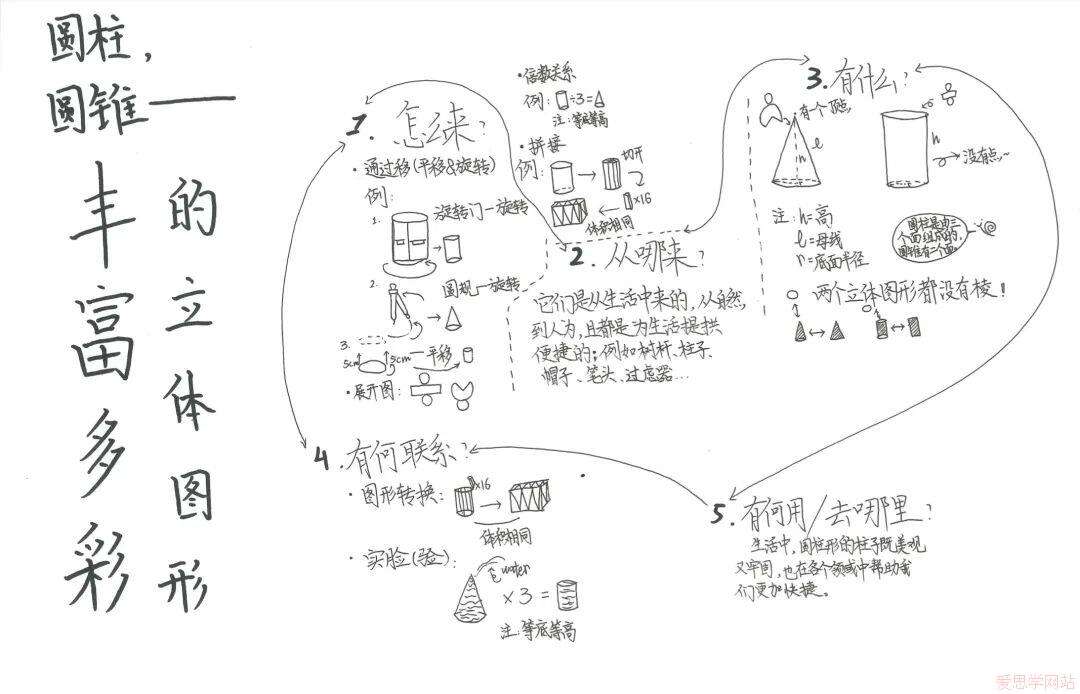 圆柱，
圆锥——
丰富多彩
的立体图形
1. 怎么来？
·通过移(平移&旋转)
例：
1. 旋转门—旋转
2. 圆规—旋转
3.
5cm 5cm—平移
·展开图：
·倍数关系
例： ÷3=
注：等底等高
·拼接
例： 切开
×16
体积相同
2. 从哪来？
它们是从生活中来的，从自然
到人为，且都是为生活提拱
便捷的；例如树杆、柱子、
帽子、笔头、过虑器…
3. 有什么？
有一个顶点
l
h
r
h
没有点~
注：h=高
l=母线
r=底面半径
圆柱是由三
个面组成的，
圆锥有二个面。
两个立体图形都没有棱！
4. 有何联系？
·图形转换：
×16
体积相同
·实脸(验)：
water
×3=
注：等底等高
5. 有何用/去哪里？
生活中，圆柱形的柱子既美观
又牢固，也在各个领域中帮助我
们更加快捷。
爱思学网站